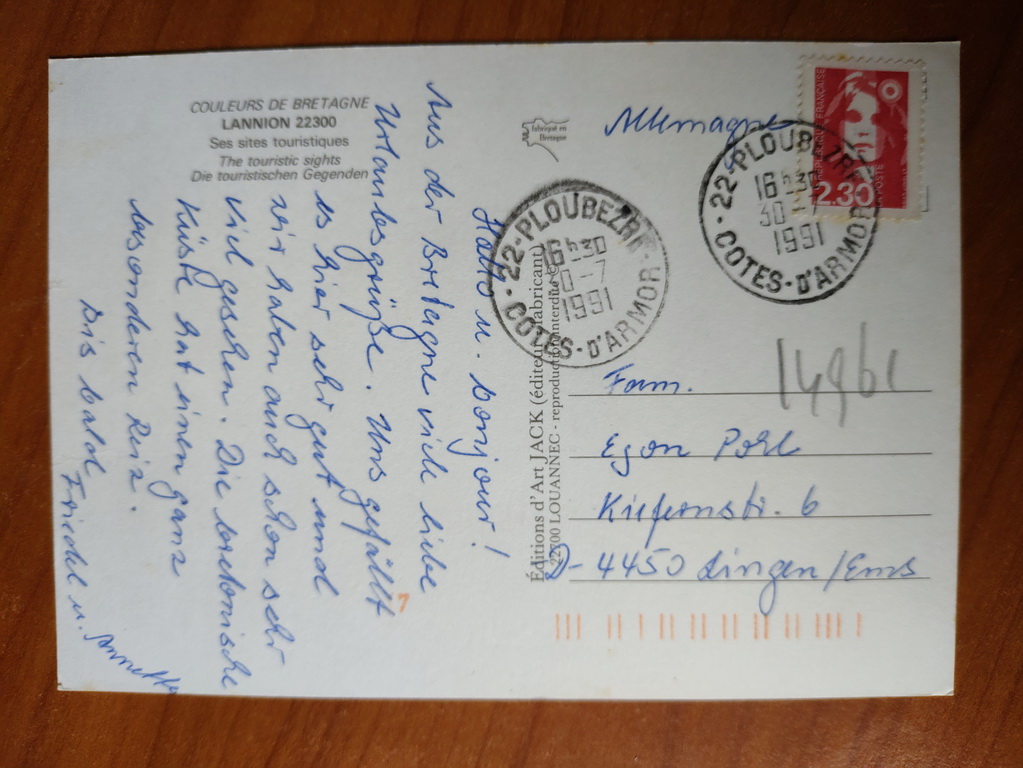 COULEURS DE BRETAGNE
LANNION 22300
Ses sites touristiques
The touristic sights
Die touristischen Gegenden
Hallo u. bonjour!
Aus der Bretagne viele liebe
Urlaubsgrüße. Uns gefällt
es hier sehr gut und
wir haben auch schon sehr
viel gesehen. Die bretonische
Küste hat einen ganz
besonderen Reiz.
Bis bald
Friedel u. Annette
fabriqué en
Bretagne
Éditions d'Art JACK (éditeur fabricant)
22700 LOUANNEC - reproduction interdite ©
Allemagne
RÉPUBLIQUE FRANÇAISE
2.30
LA POSTE
22-PLOUBEZRE
16h30
30-7
1991
COTES-D'ARMOR
22-PLOUBEZRE
16h30
30-7
1991
COTES-D'ARMOR
Fam.
Egon Pohl
Kiefernstr. 6
D-4450 Lingen/Ems
7